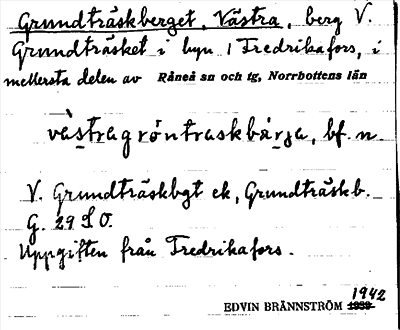 Grundträskberget, Västra, berg V.
Grundträsket i byn i Fredrikafors, i
mellersta delen av Råneå sn och tg, Norrbottens län
västra gröntraskbärja, bf. n.
V. Grundträskbgt ek, Grundträskb.
G. 29 S O.
Uppgiften från Fredrikafors.
1942
EDVIN BRÄNNSTRÖM 1938